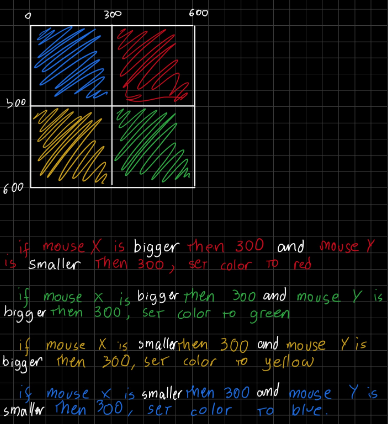 0 300 600
300
600
if mouse X is bigger then 300 and mouse Y
is smaller then 300, set color to red
if mouse x is bigger then 300 and mouse Y is
bigger then 300, set color to green
if mouse x is smaller then 300 and mouse Y is
bigger then 300, set color to yellow
if mouse x is smaller then 300 and mouse Y is
smaller then 300, set color to blue.